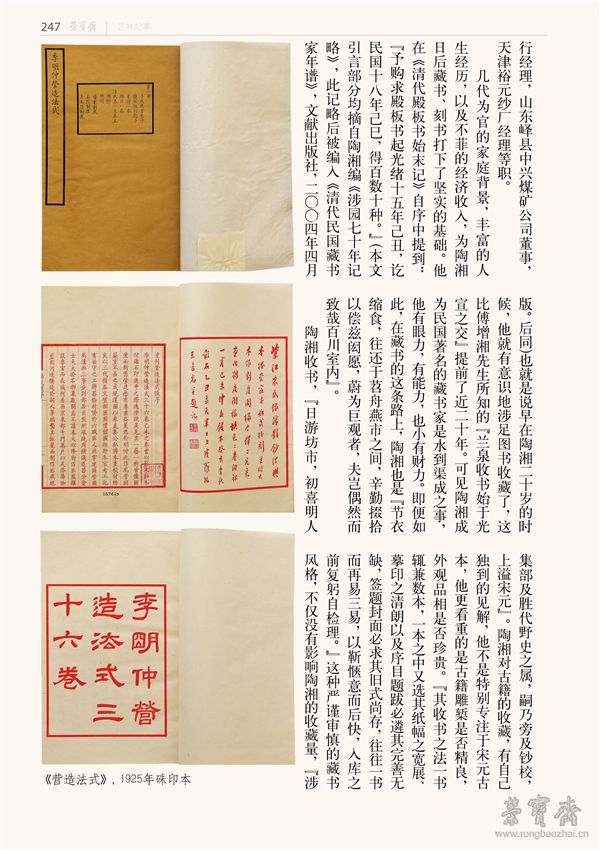 247
荣宝斋
艺林纪事
行经理，山东峄县中兴煤矿公司董事，
天津裕元纱厂经理等职。
几代为官的家庭背景，丰富的人
生经历，以及不菲的经济收入，为陶湘
日后藏书、刻书打下了坚实的基础。他
在《清代殿板书始末记》自序中提到：
『予购求殿板书起光绪十五年己丑，讫
民国十八年己巳，得百数十种。』（本文
引言部分均摘自陶湘编《涉园七十年记
略》，此记略后被编入《清代民国藏书
家年谱》，文献出版社，二〇〇四年四月
版。后同）也就是说早在陶湘二十岁的时
候，他就有意识地涉足图书收藏了，这
比傅增湘先生所知的『兰泉收书始于光
宣之交』提前了近二十年。可见陶湘成
为民国著名的藏书家是水到渠成之事，
他有眼力，有能力，也小有财力。即便如
此，在藏书的这条路上，陶湘也是『节衣
缩食，往还于苕舟燕市之间，辛勤掇拾
以偿兹闳愿，蔚为巨观者，夫岂偶然而
致哉百川室内』。
陶湘收书，『日游坊市，初喜明人
集部及胜代野史之属，嗣乃旁及钞校，
上溢宋元』。陶湘对古籍的收藏，有自己
独到的见解，他不是特别专注于宋元古
本，他更看重的是古籍雕椠是否精良，
外观品相是否珍贵。『其收书之法一书
辄兼数本，一本之中又选其纸幅之宽展、
摹印之清朗以及序目题跋必遴其完善无
缺，签题封面必求其旧式尚存，往往一书
而再易三易，以靳惬意而后快，入库之
前复躬自检理。』这种严谨审慎的藏书
风格，不仅没有影响陶湘的收藏量，『涉
李明仲营造法式
李明仲營
造法式三
十六卷
167649
《营造法式》，1925年硃印本
榮寶齋
www.rongbaozhai.cn